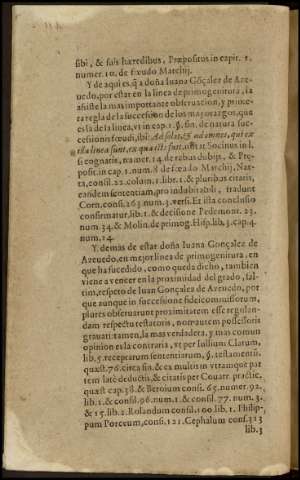 sibi, & suis hæredibus, Præpositus in capit. 1.
numer. 10. de fœudo Marchij.
Y de aqui es, q̃ a doña Iuana Gõçalez de Aze-
uedo, por estar en la linea de primogenitura, la
assiste la mas importante obseruacion, y prime-
ra regla de la succession de los mayorazgos, que
es la de la linea, vt in cap. 1. §. sin. de natura suc-
cessionis fœudi, ibi: Ad solas, & ad omnes, qui ex
illa linea sunt, ex qua iste fuit. notat Socinus in l.
si cognatis, numer. 14. de rebus dubijs, & Præ-
posit. in cap. 1. num. 8. de fœudo Marchij, Nat-
ta, consil. 22. colum. 1. libr. 1. & pluribus citatis,
eandem sententiam, pro indubitabili, tradunt
Corn. cons. 263. num. 3. versi. Et ista conclusio
confirmatur, lib. 1. & decisione Pedemont. 23.
num. 34. & Molin. de primog. Hisp. lib. 3. cap. 4.
num. 14.
Y demas de estar doña Iuana Gonçalez de
Azeuedo, en mejor linea de primogenitura, en
que ha sucedido, como queda dicho, tambien
viene a vencer en la proximidad del grado, sal-
tim, respeto de Iuan Gonçalez de Azeuedo, por
que aunque in successione fideicommissorum,
plures obseruarunt proximitatem esse regulan-
dam respectu testatoris, non autem possessoris
grauati: tamen, la mas verdadera, y mas comun
opinion es la contraria, vt per Iulium Clarum,
lib. 3. receptarum sententiarum, §. testamentũ.
quæst. 76. circa fin. & ex multis in vtramque par
tem latè deductis, & citatis per Couarr. practic.
quæst. cap. 38. & Beroium consi. 65. numer. 92.
lib. 1. & consil. 96. num. 1. & consil. 77. num. 3.
& 15. lib. 2. Rolandum consil. 100. lib. 1. Philip-
pum Porceum, cons. 121. Cephalum cons. 323
lib. 3